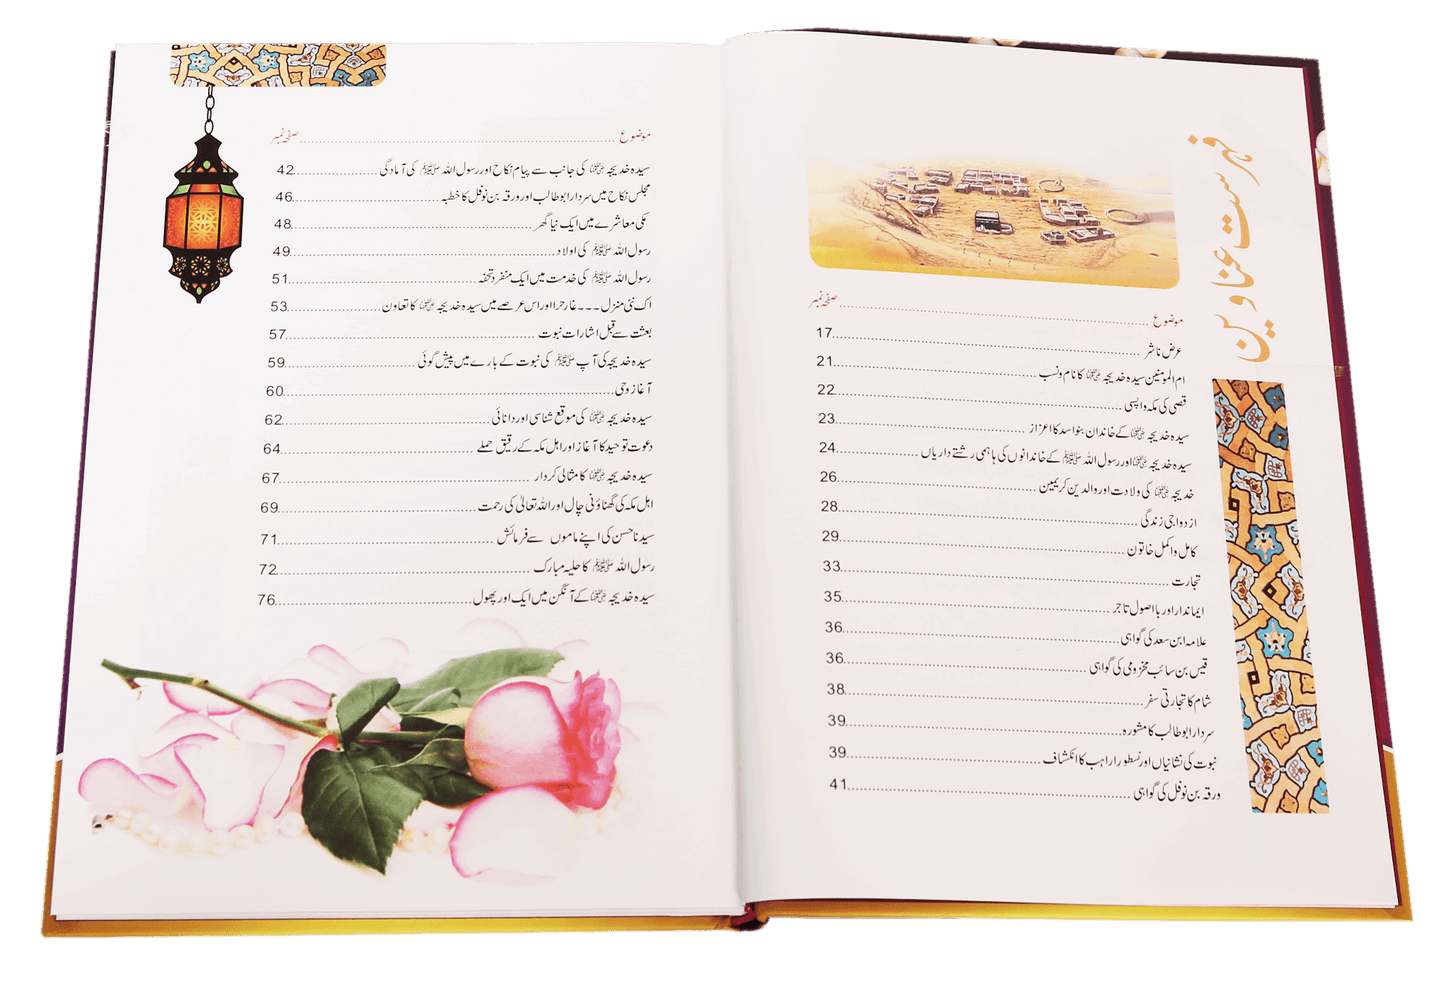 فہرست عناوین
موضوع ........ صفحہ نمبر
عرض ناشر ........ 17
ام المومنین سیدہ خدیجہ رضی اللہ عنہا کا نام و نسب ........ 21
قصی کی مکہ واپسی ........ 22
سیدہ خدیجہ رضی اللہ عنہا کے خاندان بنو اسد کا اعزاز ........ 23
سیدہ خدیجہ رضی اللہ عنہا اور رسول اللہ ﷺ کے خاندانوں کی باہمی رشتے داریاں ........ 24
خدیجہ رضی اللہ عنہا کی ولادت اور والدین کریمین ........ 26
ازدواجی زندگی ........ 28
کامل و اکمل خاتون ........ 29
تجارت ........ 33
ایماندار اور بااصول تاجر ........ 35
علامہ ابن سعد کی گواہی ........ 36
قیس بن سائب مخزومی کی گواہی ........ 36
شام کا تجارتی سفر ........ 38
سردار ابو طالب کا مشورہ ........ 39
نبوت کی نشانیاں اور نسطورا راہب کا انکشاف ........ 39
ورقہ بن نوفل کی گواہی ........ 41
موضوع ........ صفحہ نمبر
سیدہ خدیجہ رضی اللہ عنہا کی جانب سے پیام نکاح اور رسول اللہ ﷺ کی آمادگی ........ 42
مجلس نکاح میں سردار ابو طالب اور ورقہ بن نوفل کا خطبہ ........ 46
مکی معاشرے میں ایک نیا گھر ........ 48
رسول اللہ ﷺ کی اولاد ........ 49
رسول اللہ ﷺ کی خدمت میں ایک منفرد تحفہ ........ 51
اک نئی منزل۔۔۔غار حرا اور اس عرصے میں سیدہ خدیجہ رضی اللہ عنہا کا تعاون ........ 53
بعثت سے قبل اشارات نبوت ........ 57
سیدہ خدیجہ کی آپ ﷺ کی نبوت کے بارے میں پیش گوئی ........ 59
آغاز وحی ........ 60
سیدہ خدیجہ رضی اللہ عنہا کی موقع شناسی اور دانائی ........ 62
دعوت توحید کا آغاز اور اہل مکہ کے رقیق حملے ........ 64
سیدہ خدیجہ رضی اللہ عنہا کا مثالی کردار ........ 67
اہل مکہ کی گھناؤنی چال اور اللہ تعالیٰ کی رحمت ........ 69
سیدنا حسن کی اپنے ماموں سے فرمائش ........ 71
رسول اللہ ﷺ کا حلیہ مبارک ........ 72
سیدہ خدیجہ رضی اللہ عنہا کے آنگن میں ایک اور پھول ........ 76